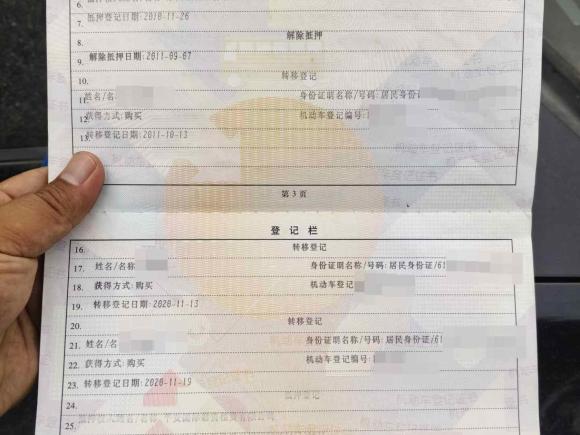 6.
7. 抵押登记日期:2010-11-26
8. 解除抵押
9. 解除抵押日期:2011-09-07
10. 转移登记
11. 姓名/名 身份证明名称/号码:居民身份证
12. 获得方式:购买 机动车登记编号:
13. 转移登记日期:2011-10-13
第 3 页
登 记 栏
16. 转移登记
17. 姓名/名称 身份证明名称/号码:居民身份证/61
18. 获得方式:购买 机动车登记
19. 转移登记日期:2020-11-13
20. 转移登记
21. 姓名/名称: 身份证明名称/号码:居民身份证/61
22. 获得方式:购买 机动车登记编号:
23. 转移登记日期:2020-11-19
24. 抵押登记
25.